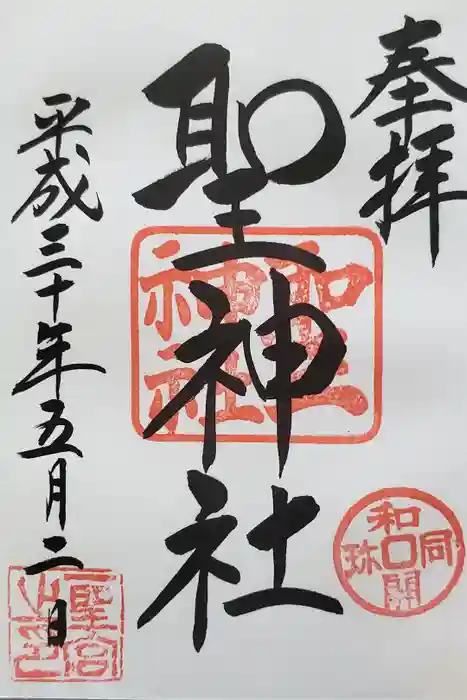 奉拝
聖神社
平成三十年五月二日
聖神社
和同開珎